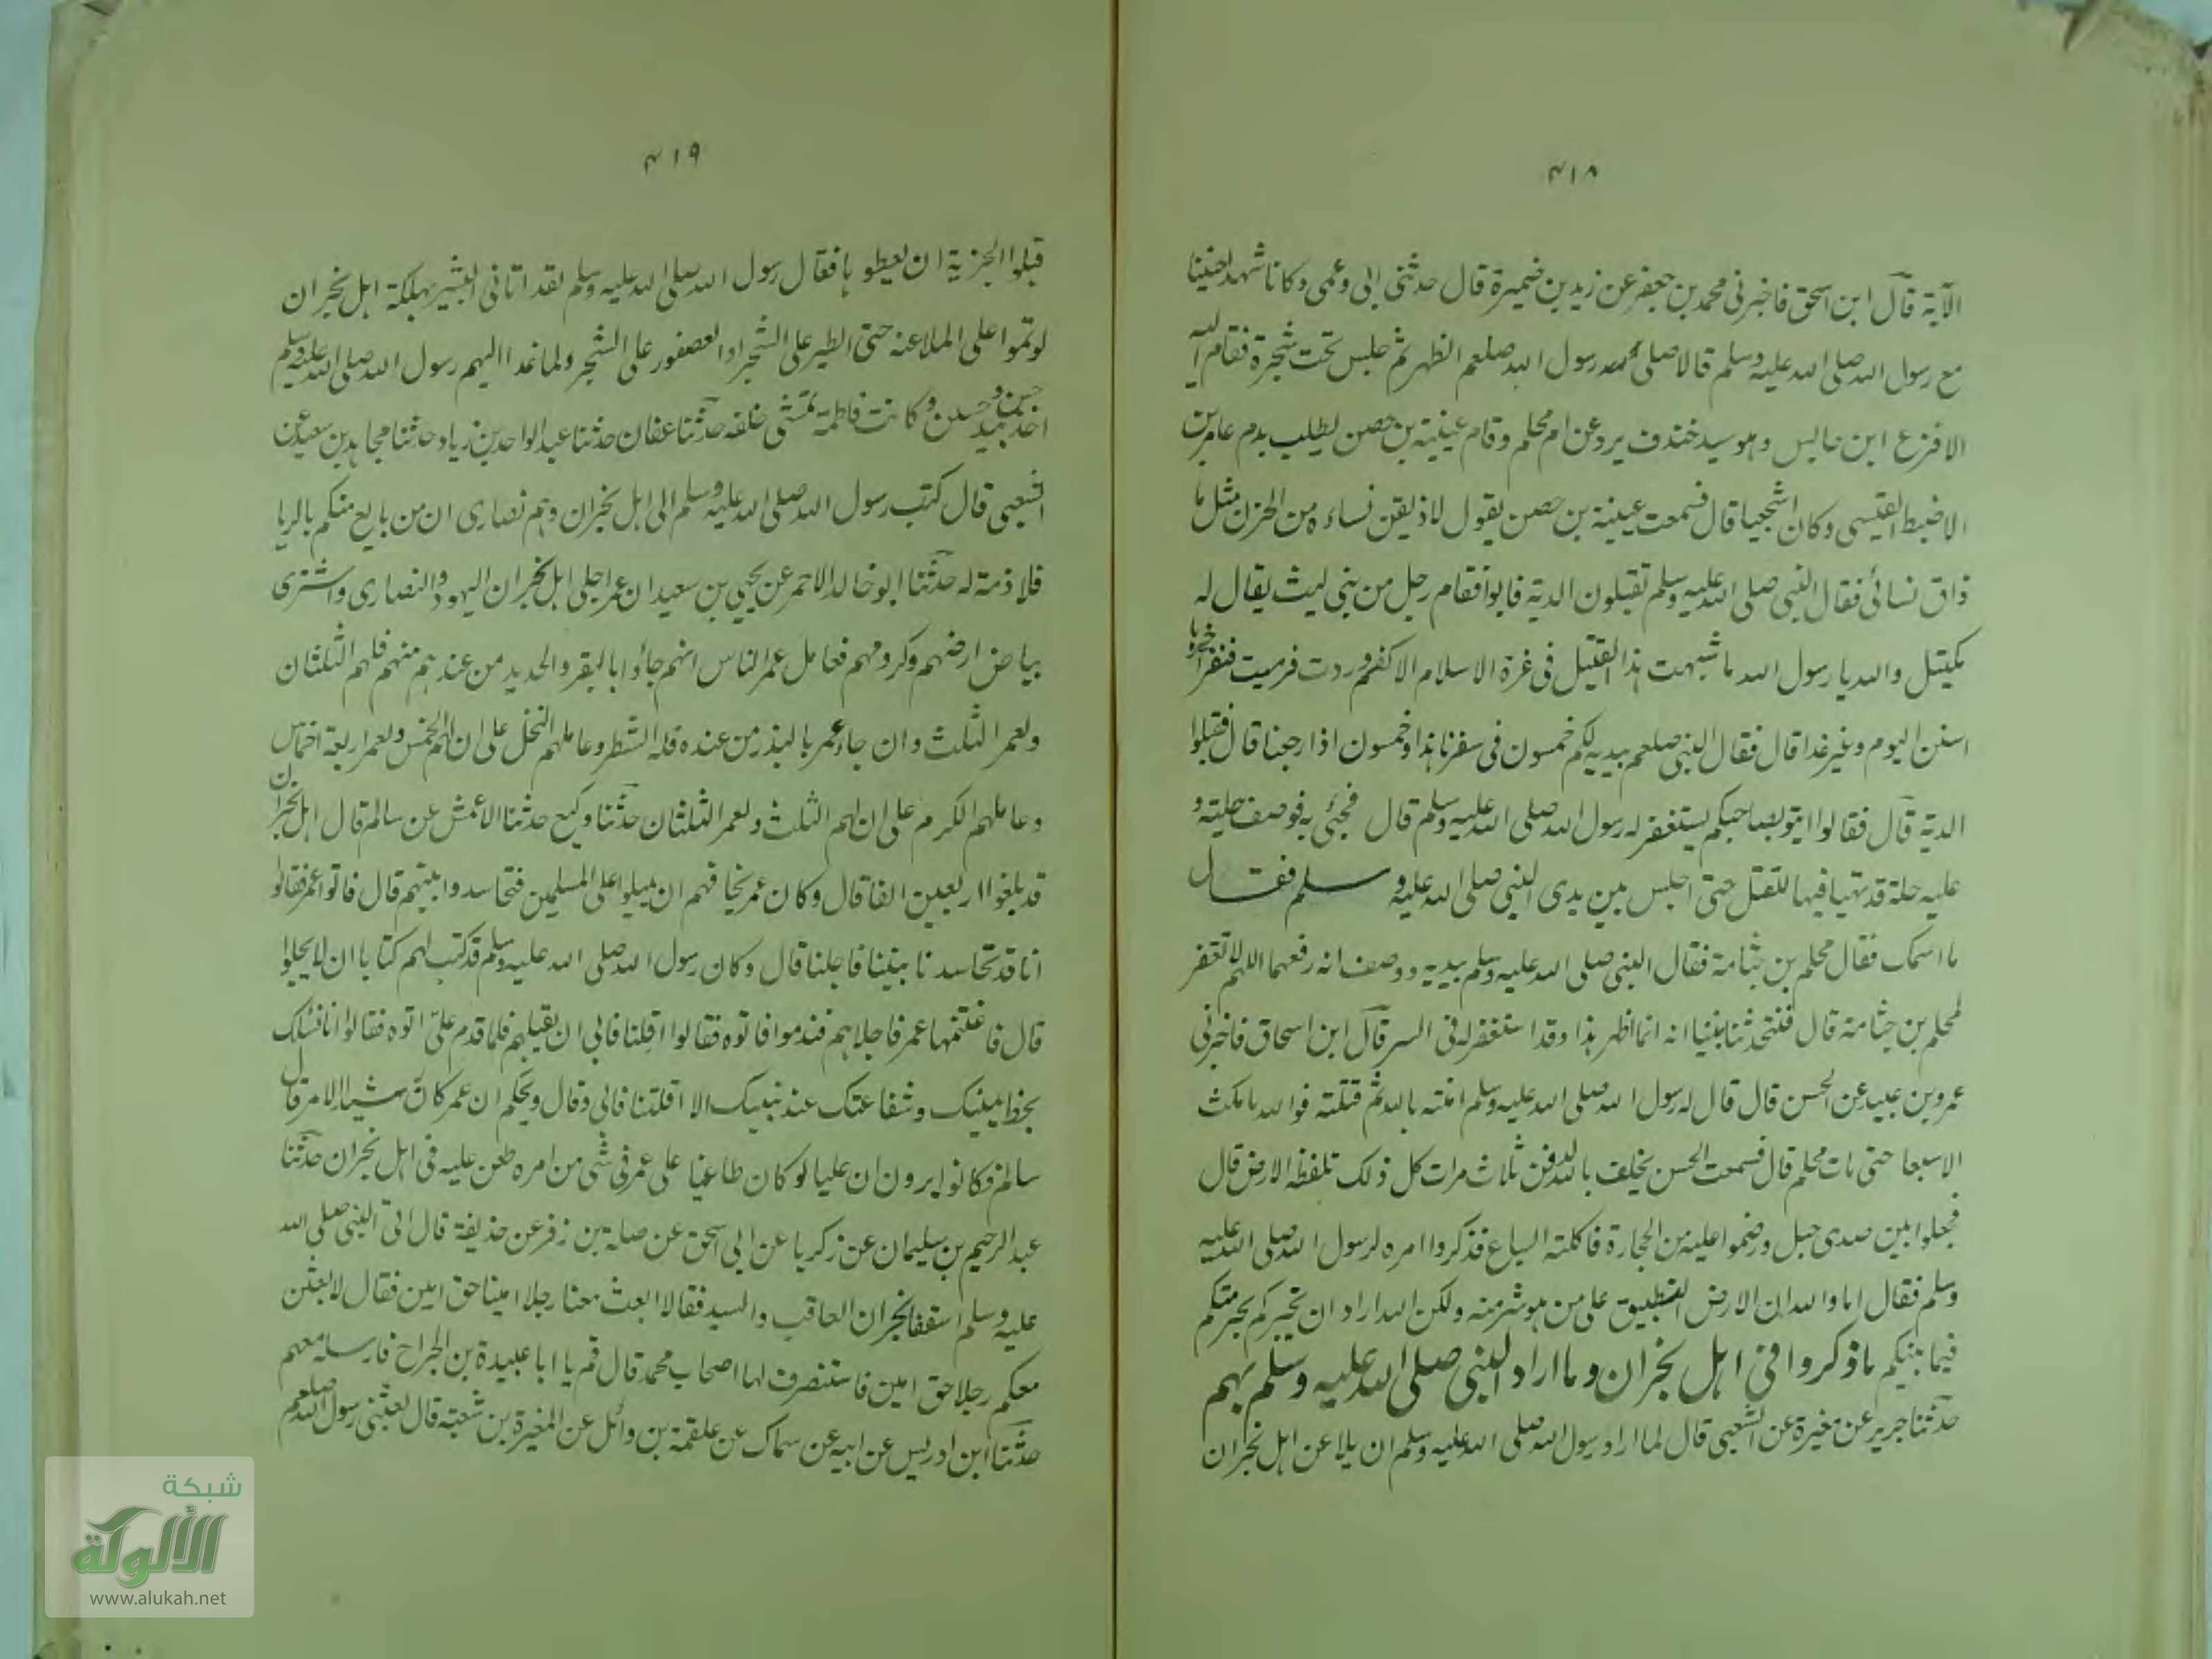 ٤١٨
الآية قال ابن اسحق فاخبرنى محمد بن جعفر عن زيد بن ضميرة قال حدثنى ابى وعمى وكانا شهدا حنينا
مع رسول الله صلى الله عليه وسلم قالا صلى رسول الله صلعم الظهر ثم جلس تحت شجرة فقام اليه
الاقرع ابن حابس وهو سيد خندف يرد عن ام محلم وقام عيينة بن حصن يطلب بدم عامر بن
الاضبط القيسى وكان اشجعيا قال فسمعت عيينة بن حصن يقول لاذيقن نساءه من الحزن مثل ما
ذاق نسائى فقال النبى صلى الله عليه وسلم تقبلون الدية فابوا فقام رجل من بنى ليث يقال له
مكيتل والله يا رسول الله ما شبهت هذا القتيل فى غرة الاسلام الا كغنم وردت فرميت فنفر اخرها
اسنن اليوم وغير غدا قال فقال النبى صلعم بيديه لكم خمسون فى سفرنا هذا وخمسون اذا رجعنا قال فقبلوا
الدية قال فقالوا ايتو بصاحبكم يستغفر له رسول الله صلى الله عليه وسلم قال فجئى به فوصف حليته و
عليه حلة قد تهيا فيها للقتل حتى اجلس بين يدى النبى صلى الله عليه وسلم فقال
ما اسمك فقال محلم بن جثامة فقال النبى صلى الله عليه وسلم بيديه ووصف انه رفعهما اللهم لا تغفر
لمحلم بن جثامة قال فتحدثنا بيننا انه انما اظهر هذا وقد استغفر له فى السر قال ابن اسحاق فاخبرنى
عمرو بن عبيد عن الحسن قال قال له رسول الله صلى الله عليه وسلم امنته بالله ثم قتلته فوالله ما مكث
الا سبعا حتى مات محلم قال فسمعت الحسن يحلف بالله لدفن ثلاث مرات كل ذلك تلفظه الارض قال
فجعلوا بين صدى جبل ورضموا عليه من الحجارة فاكلته السباع فذكروا امره لرسول الله صلى الله عليه
وسلم فقال اما والله ان الارض لتطبق على من هو شر منه ولكن الله اراد ان يخبركم بحرمتكم
فيما بينكم ما ذكروا فى اهل نجران وما اراد النبى صلى الله عليه وسلم بهم
حدثنا جرير عن مغيرة عن الشعبى قال لما اراد رسول الله صلى الله عليه وسلم ان يلاعن اهل نجران
٤١٩
قبلوا الجزية ان يعطوها فقال رسول الله صلى الله عليه وسلم لقد اتانى البشير بهلكة اهل نجران
لو تموا على الملاعنة حتى الطير على الشجر او العصفور على الشجر ولما غدا اليهم رسول الله صلى الله عليه وسلم
اخذ بيد حسن وحسين وكانت فاطمة تمشى خلفه حدثنا عفان حدثنا عبد الواحد بن زياد حدثنا مجاهد بن سعيد عن
الشعبى قال كتب رسول الله صلى الله عليه وسلم الى اهل نجران وهم نصارى ان من بايع منكم بالربا
فلا ذمة له حدثنا ابو خالد الاحمر عن يحيى بن سعيد ان عمر اجلى اهل نجران اليهود والنصارى واشترى
بياض ارضهم وكرومهم فعامل عمر الناس انهم جاؤا بالبقر والحديد من عندهم منهم فلهم الثلثان
ولعمر الثلث وان جاء عمر بالبذر من عنده فله الشطر وعاملهم النخل على ان لهم الخمس ولعمر اربعة اخماس
وعاملهم الكرم على ان لهم الثلث ولعمر الثلثان حدثنا وكيع حدثنا الاعمش عن سالم قال اهل نجران
قد بلغوا اربعين الفا قال وكان عمر يخافهم ان يميلوا على المسلمين فتحاسدوا بينهم قال فاتوا عمر فقالوا
انا قد تحاسدنا بيننا فاجلنا قال وكان رسول الله صلى الله عليه وسلم قد كتب لهم كتابا ان لا يجلوا
قال فاغتنمها عمر فاجلاهم فندموا فاتوه فقالوا اقلنا فابى ان يقيلهم فلما قدم على اتوه فقالوا انا نسئلك
بخط يمينك وشفاعتك عند نبيك الا اقلتنا فابى وقال ويحكم ان عمر كان رشيد الامر قال
سالم فكانوا يرون ان عليا لو كان طاعنا على عمر فى شئ من امره طعن عليه فى اهل نجران حدثنا
عبد الرحيم بن سليمان عن زكريا عن ابى اسحق عن صلة بن زفر عن حذيفة قال اتى النبى صلى الله
عليه وسلم اسقفا نجران العاقب والسيد فقالا ابعث معنا رجلا امينا حق امين فقال لابعثن
معكم رجلا حق امين فاستشرف لها اصحاب محمد قال قم يا ابا عبيدة بن الجراح فارسله معهم
حدثنا ابن ادريس عن ابيه عن سماك عن علقمة بن وائل عن المغيرة بن شعبة قال بعثنى رسول الله صلعم
شبكة
الألوكة
www.alukah.net